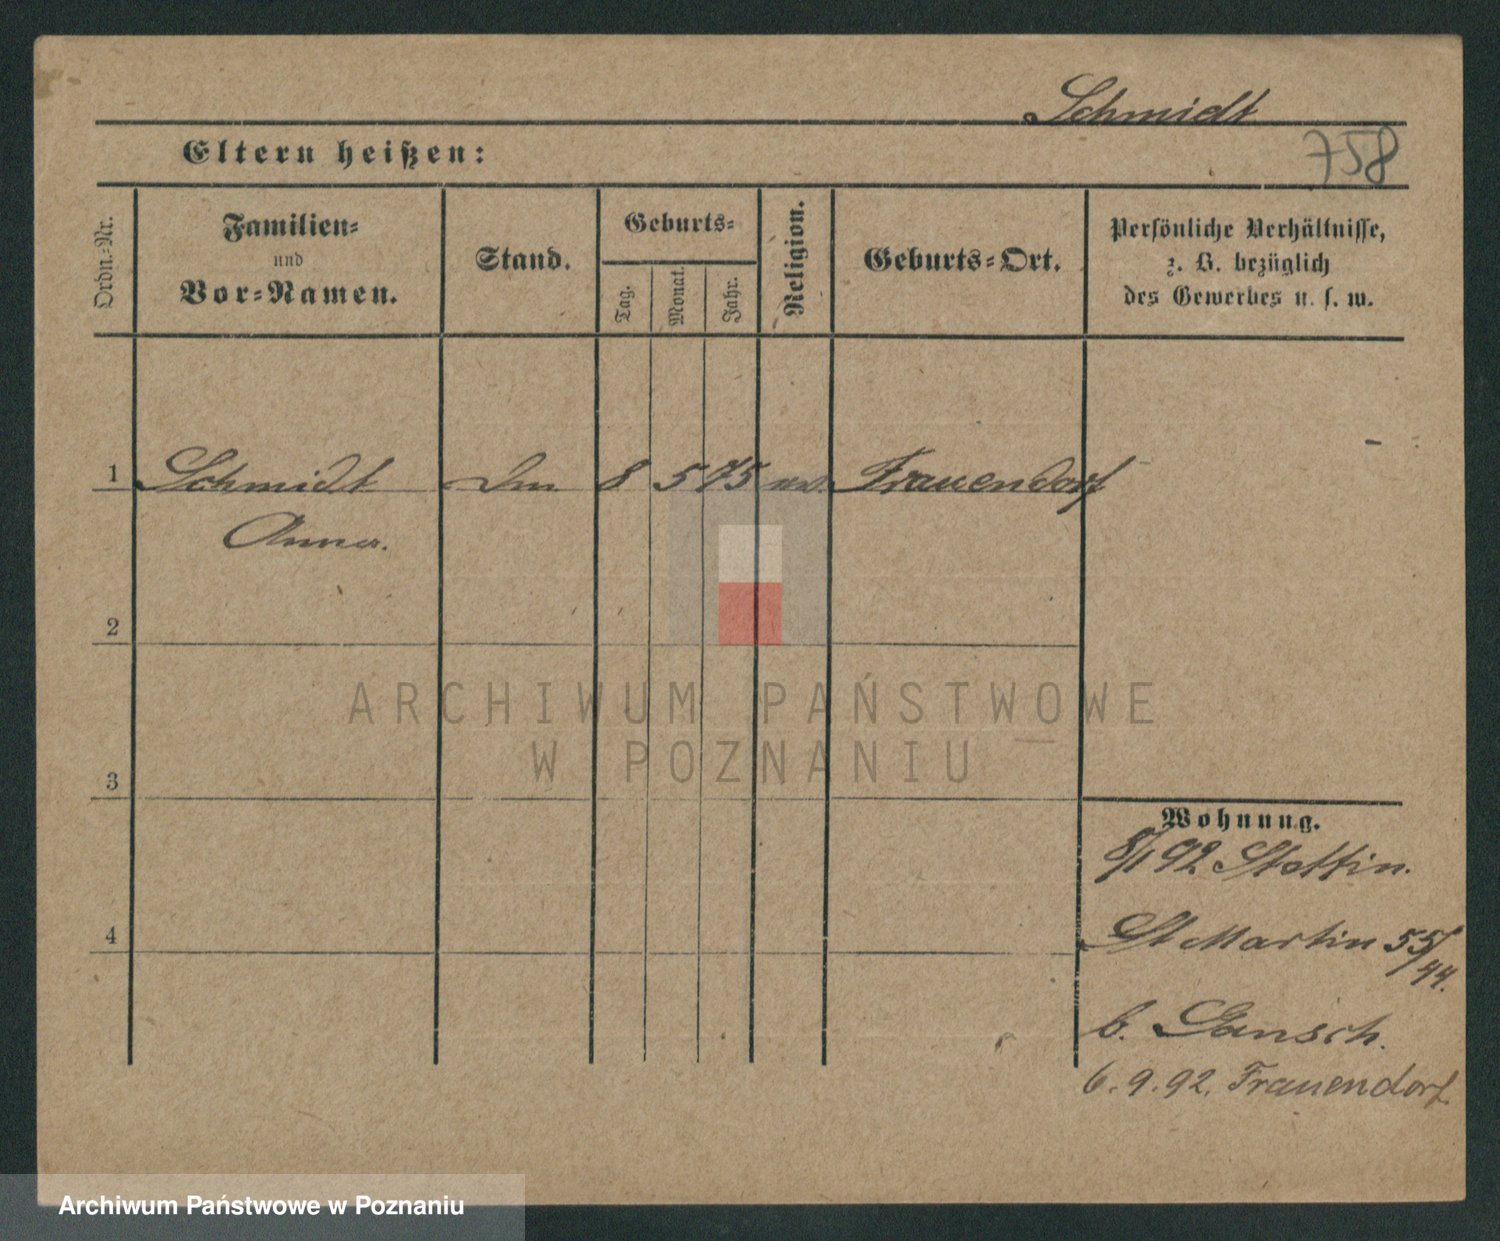 Schmidt
758
Eltern heißen:
Ordn.-Nr.
Familien-
und
Vor-Namen.
Stand.
Geburts-
Tag.
Monat.
Jahr.
Religion.
Geburts-Ort.
Persönliche Verhältnisse,
z. B. bezüglich
des Gewerbes u. s. w.
1 Schmidt 8 5 75 Frauendorf
Anna.
2
ARCHIWUM PAŃSTWOWE
W POZNANIU
3
Wohnung.
8/1 92 Stettin.
4
St Martin 55/44.
b. Gansch.
6.9.92. Frauendorf
Archiwum Państwowe w Poznaniu